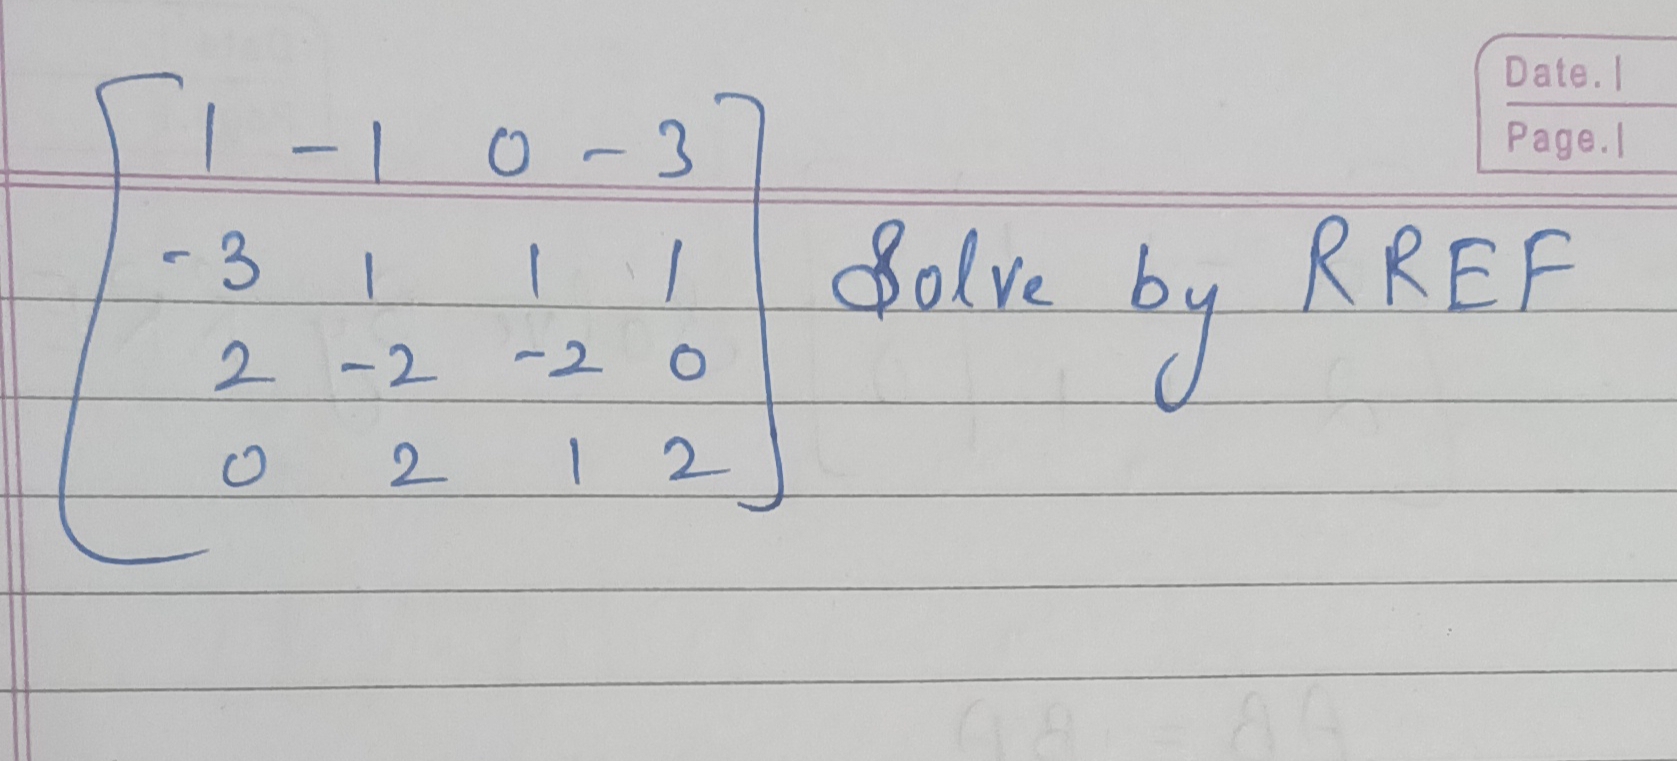 Date.
Page.
1 -1 0 -3
-3 1 1 1 Solve by RREF
2 -2 -2 0
0 2 1 2